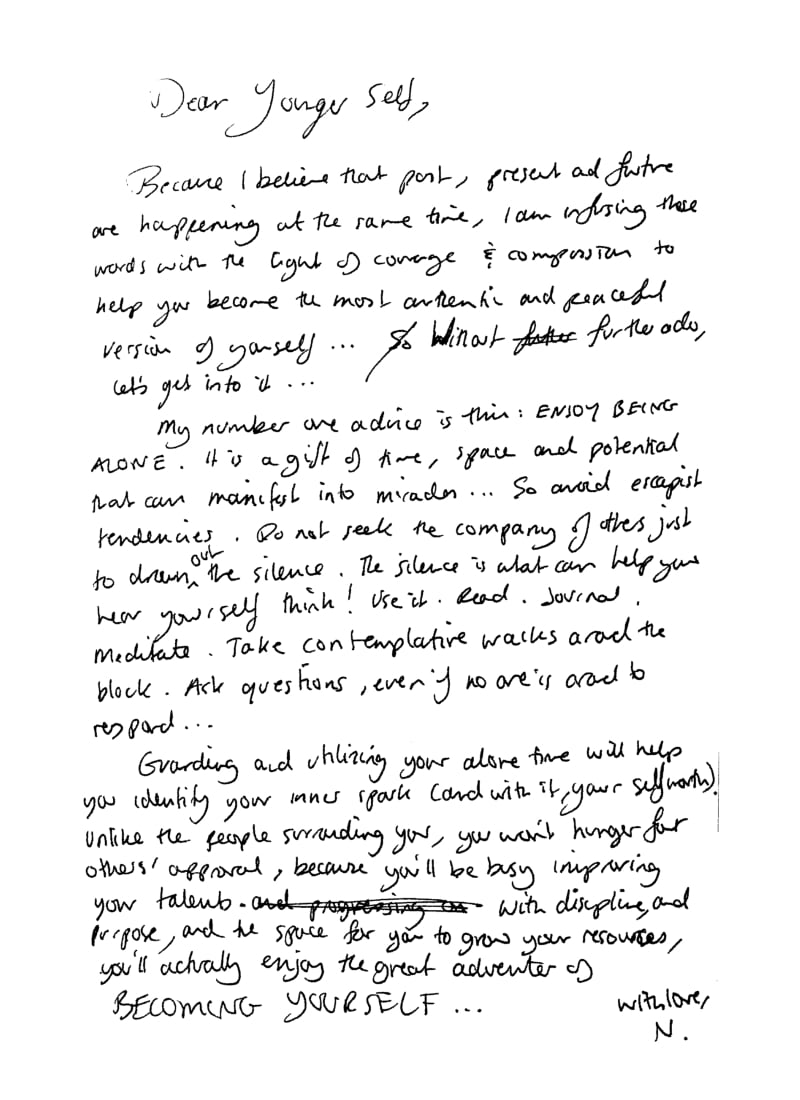 Dear Younger Self,
Because I believe that past, present and future
are happening at the same time, I am infusing these
words with the light of courage & compassion to
help you become the most authentic and peaceful
version of yourself ... So without further ado,
Let's get into it ...
My number one advice is this: ENJOY BEING
ALONE. It is a gift of time, space and potential
that can manifest into miracles ... So avoid escapist
tendencies. Do not seek the company of others just
to drown out the silence. The silence is what can help you
hear yourself think! Use it. Read. Journal.
Meditate. Take contemplative walks around the
block. Ask questions, even if no one is around to
respond ...
Guarding and utilizing your alone time will help
you identify your inner spark (and with it, your self worth).
Unlike the people surrounding you, you won't hunger for
others' approval, because you'll be busy improving
your talents. and progressing on With discipline, and
purpose, and the space for you to grow your resources,
you'll actually enjoy the great adventer of
BECOMING YOURSELF ...
With love,
N.